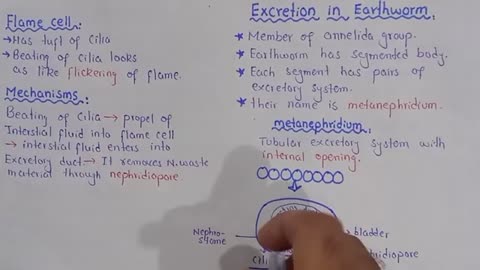 Flame cell:
→ Has tuft of Cilia
→ Beating of Cilia looks
as like flickering of flame.
Mechanisms:
Beating of Cilia → propel of
Interstial fluid into flame cell
→ interstial fluid enters into
Excretory duct → It removes N.waste
material through nephridiopore.
Excretion in Earthworm:
★ Member of annelida group.
★ Earthworm has segmented body.
★ Each segment has pairs of
excretory system.
★ their name is metanephridium.
metanephridium:
Tubular excretory system with
internal opening.
Nephro-
stome
bladder